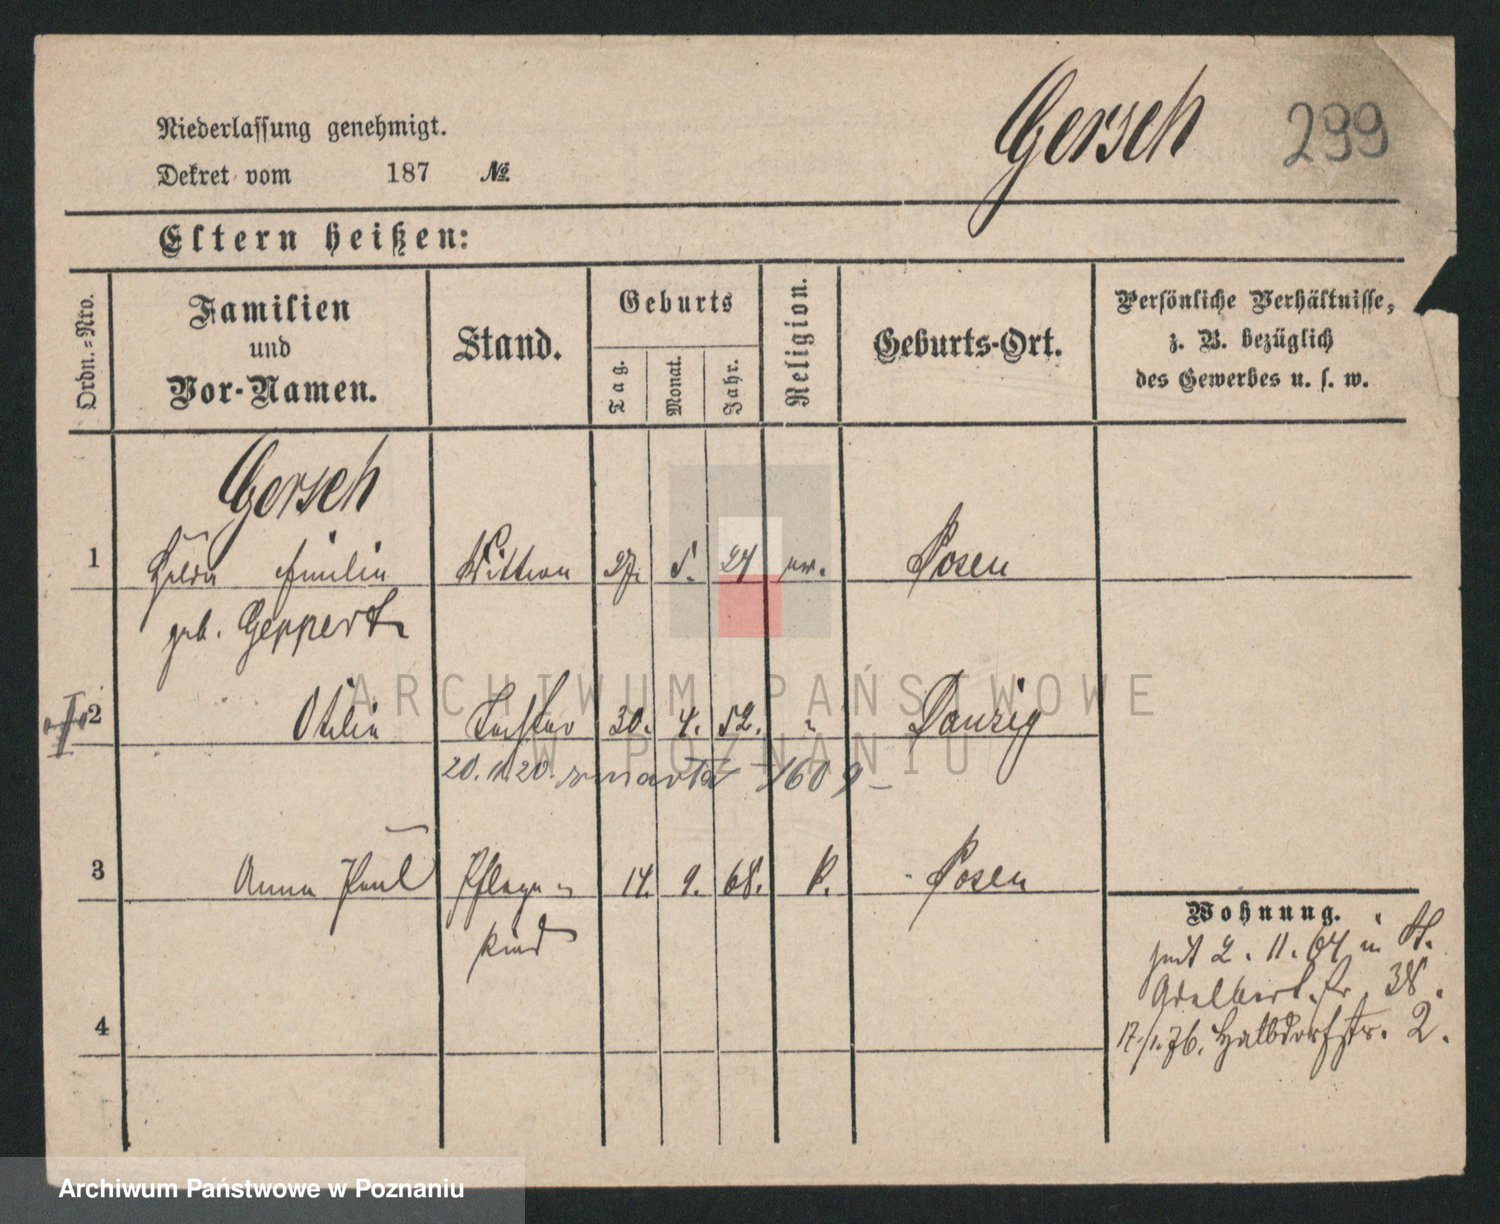 Gersch 299
Niederlassung genehmigt.
Dekret vom 187 №
Eltern heißen:
Ordn.-Nro.
Familien
und
Vor-Namen.
Stand.
Geburts
Tag.
Monat.
Jahr.
Religion.
Geburts-Ort.
Persönliche Verhältnisse,
z. B. bezüglich
des Gewerbes u. s. w.
Gersch
1 Emilie Wittwe 27. 5. 24 ev. Posen
geb. Geppert
2 Otilie Tochter 30. 4. 52. " Danzig
20. 11. 20. zmarła 160 9
3 Anna Paul Pflege- 14. 9. 68. k. Posen
kind
4
Wohnung.
seit 2. 11. 64 in St.
Adelbert str. 38.
17./1.76. Halbdorfstr. 2.
ARCHIWUM PAŃSTWOWE
W POZNANIU
Archiwum Państwowe w Poznaniu